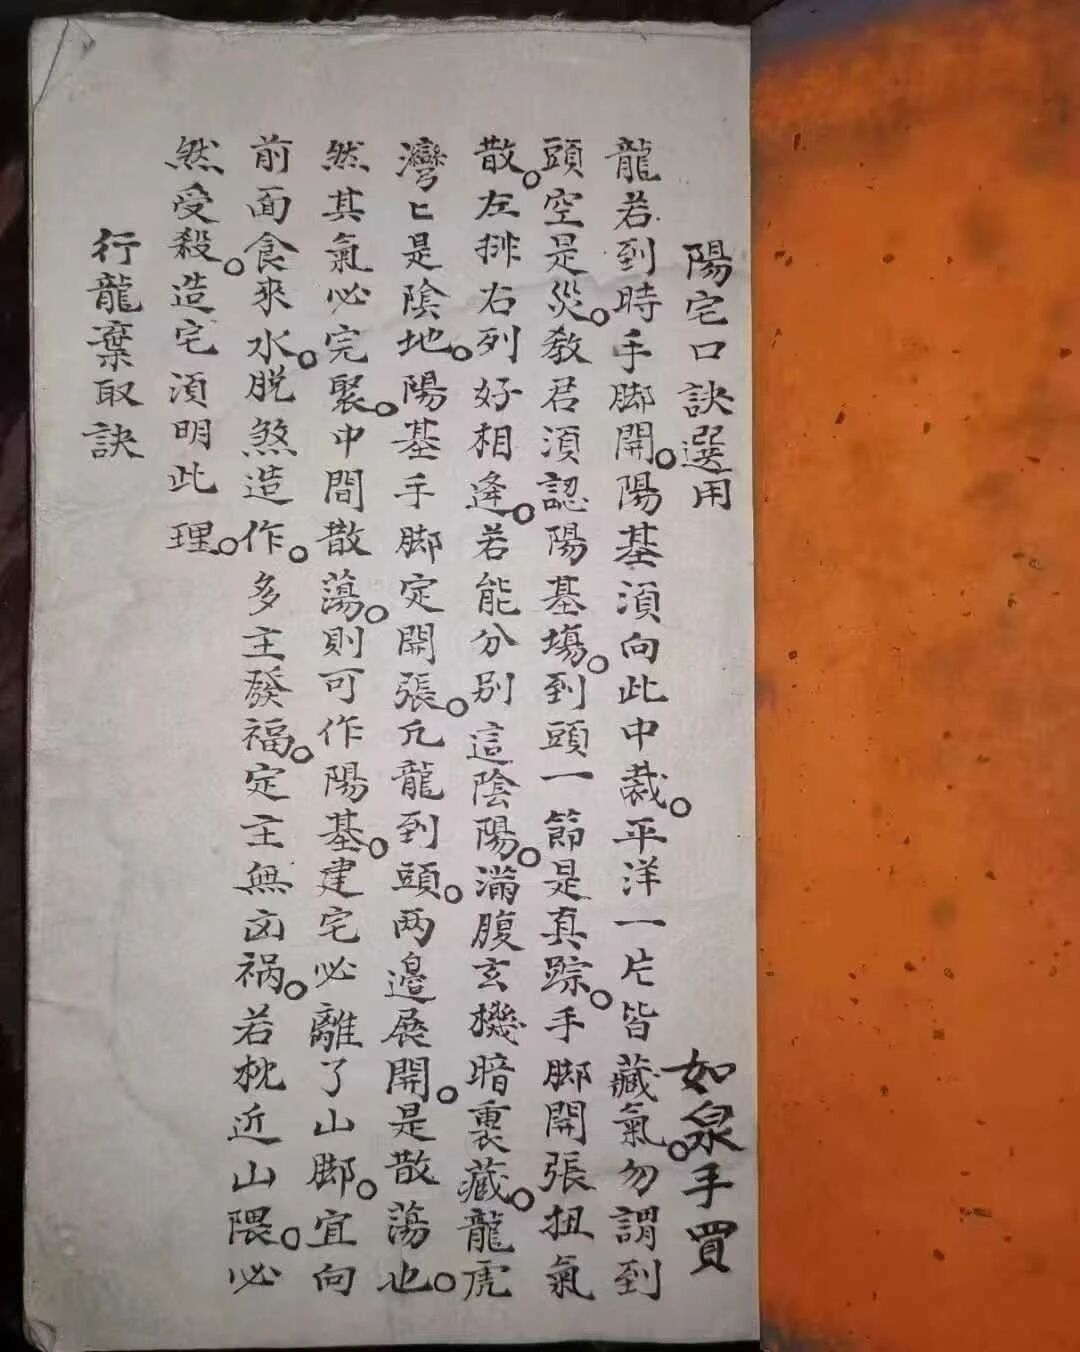 陽宅口訣選用　如泉手買
龍若到時手脚開。陽基湏向此中裁。平洋一片皆藏氣。勿謂到
頭空是災。教君湏認陽基塲。到頭一節是真踪。手脚開張扭氣
散。左排右列好相逢。若能分别這陰陽。滿腹玄機暗裏藏。龍虎
灣匕是陰地。陽基手脚定開張。凢龍到頭。两邉展開。是散蕩也。
然其氣必完聚。中間散蕩。則可作陽基。建宅必離了山脚。宜向
前面食来水。脱煞造作。多主發福。定主無凶禍。若枕近山隈。必
然受殺。造宅湏明此理。
行龍棄取訣